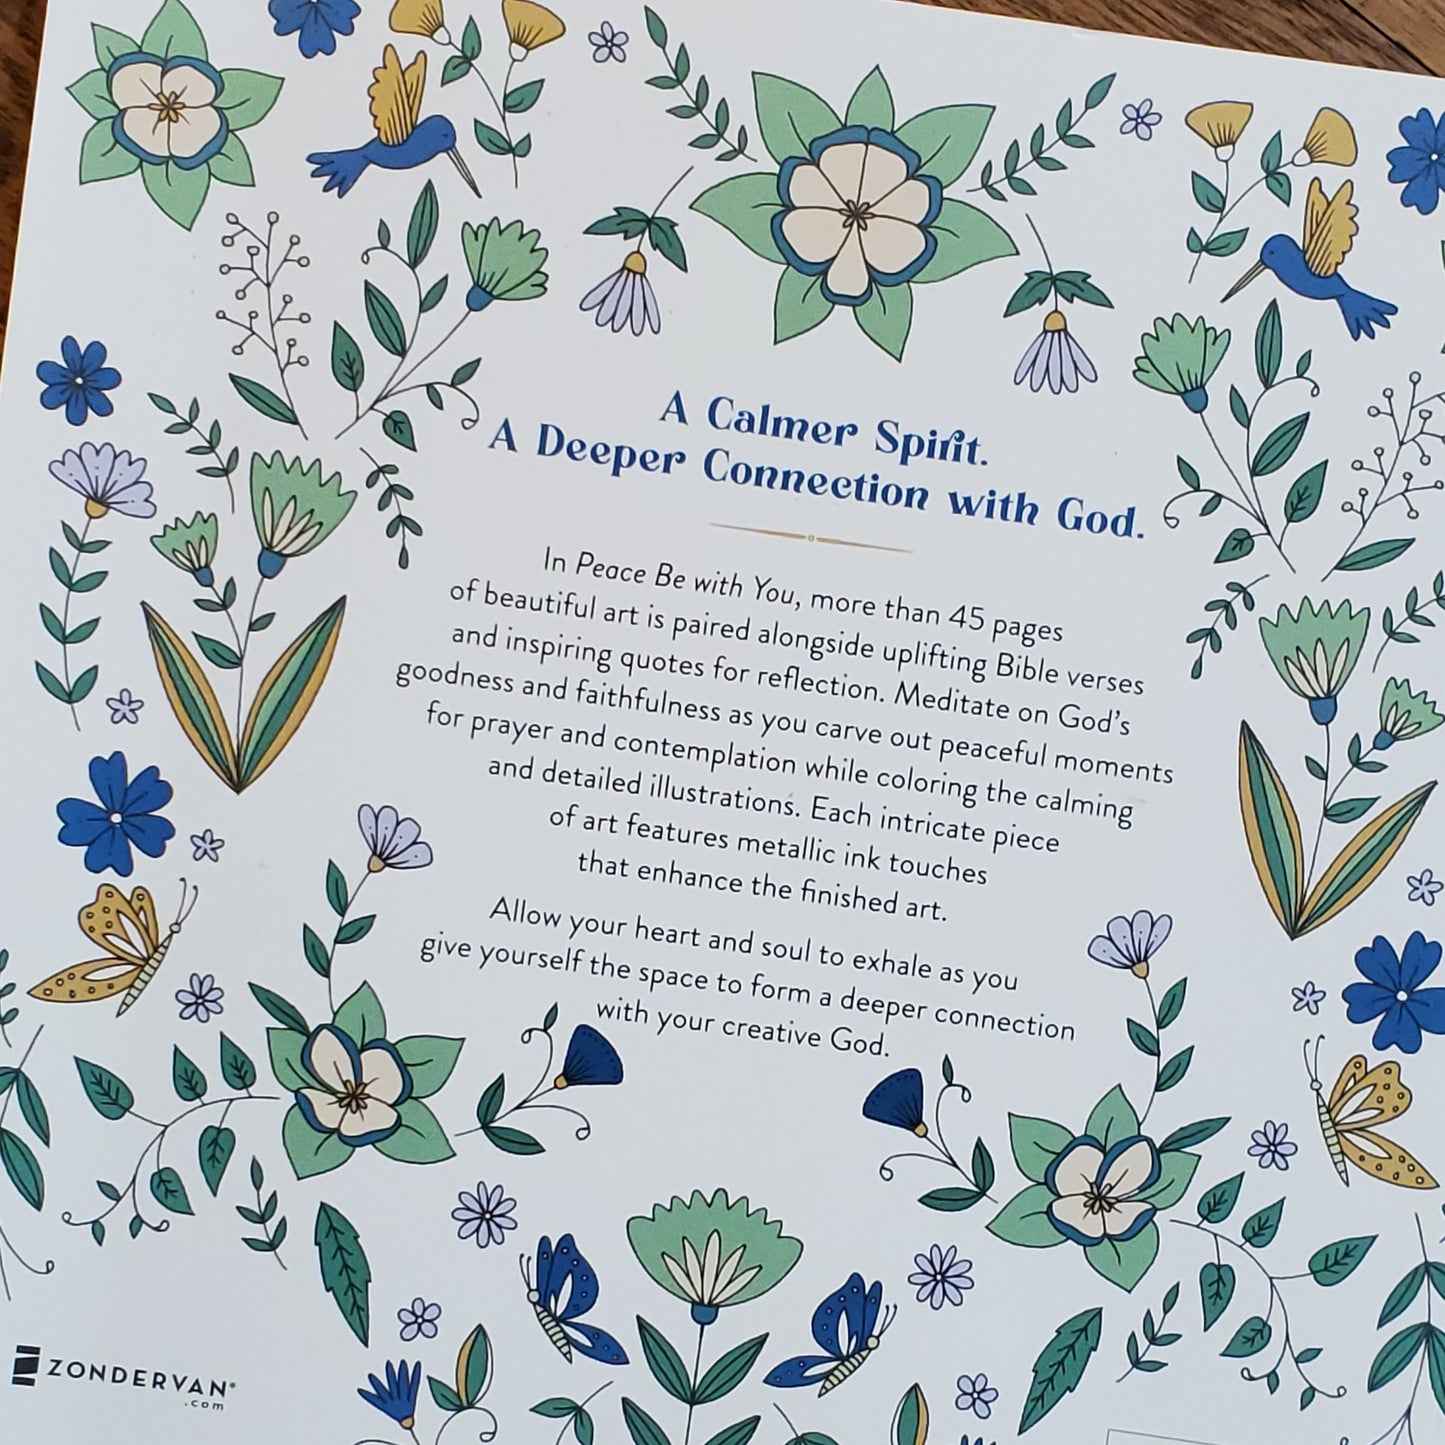 A Calmer Spirit.
A Deeper Connection with God.
In Peace Be with You, more than 45 pages
of beautiful art is paired alongside uplifting Bible verses
and inspiring quotes for reflection. Meditate on God's
goodness and faithfulness as you carve out peaceful moments
for prayer and contemplation while coloring the calming
and detailed illustrations. Each intricate piece
of art features metallic ink touches
that enhance the finished art.
Allow your heart and soul to exhale as you
give yourself the space to form a deeper connection
with your creative God.
ZONDERVAN®
.com